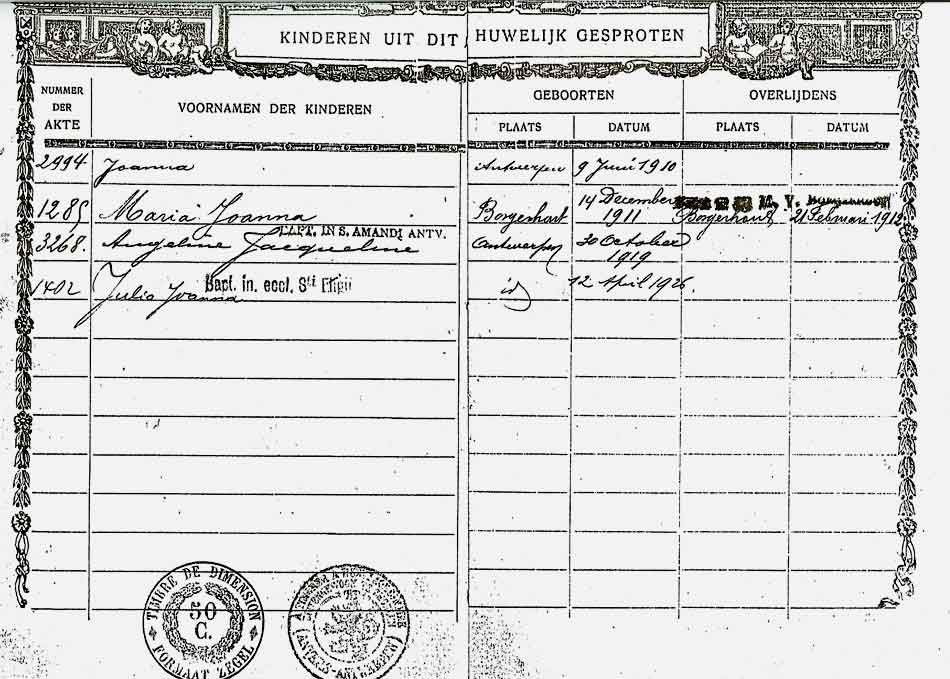 KINDEREN UIT DIT HUWELIJK GESPROTEN
NUMMER DER AKTE
VOORNAMEN DER KINDEREN
GEBOORTEN
OVERLIJDENS
PLAATS
DATUM
PLAATS
DATUM
2994 Joanna Antwerpen 9 Juni 1910
1285 Maria Joanna Borgerhout 14 December 1911 Borgerhout 21 Februari 1912
BAPT. IN S. AMANDI ANTV.
3268. Angeline Jacqueline Antwerpen 30 October 1919
Bapt. in. eccl. Sti
1402 Julia Joanna id 12 April 1926.
TIMBRE DE DIMENSION
50 C.
FORMAAT ZEGEL